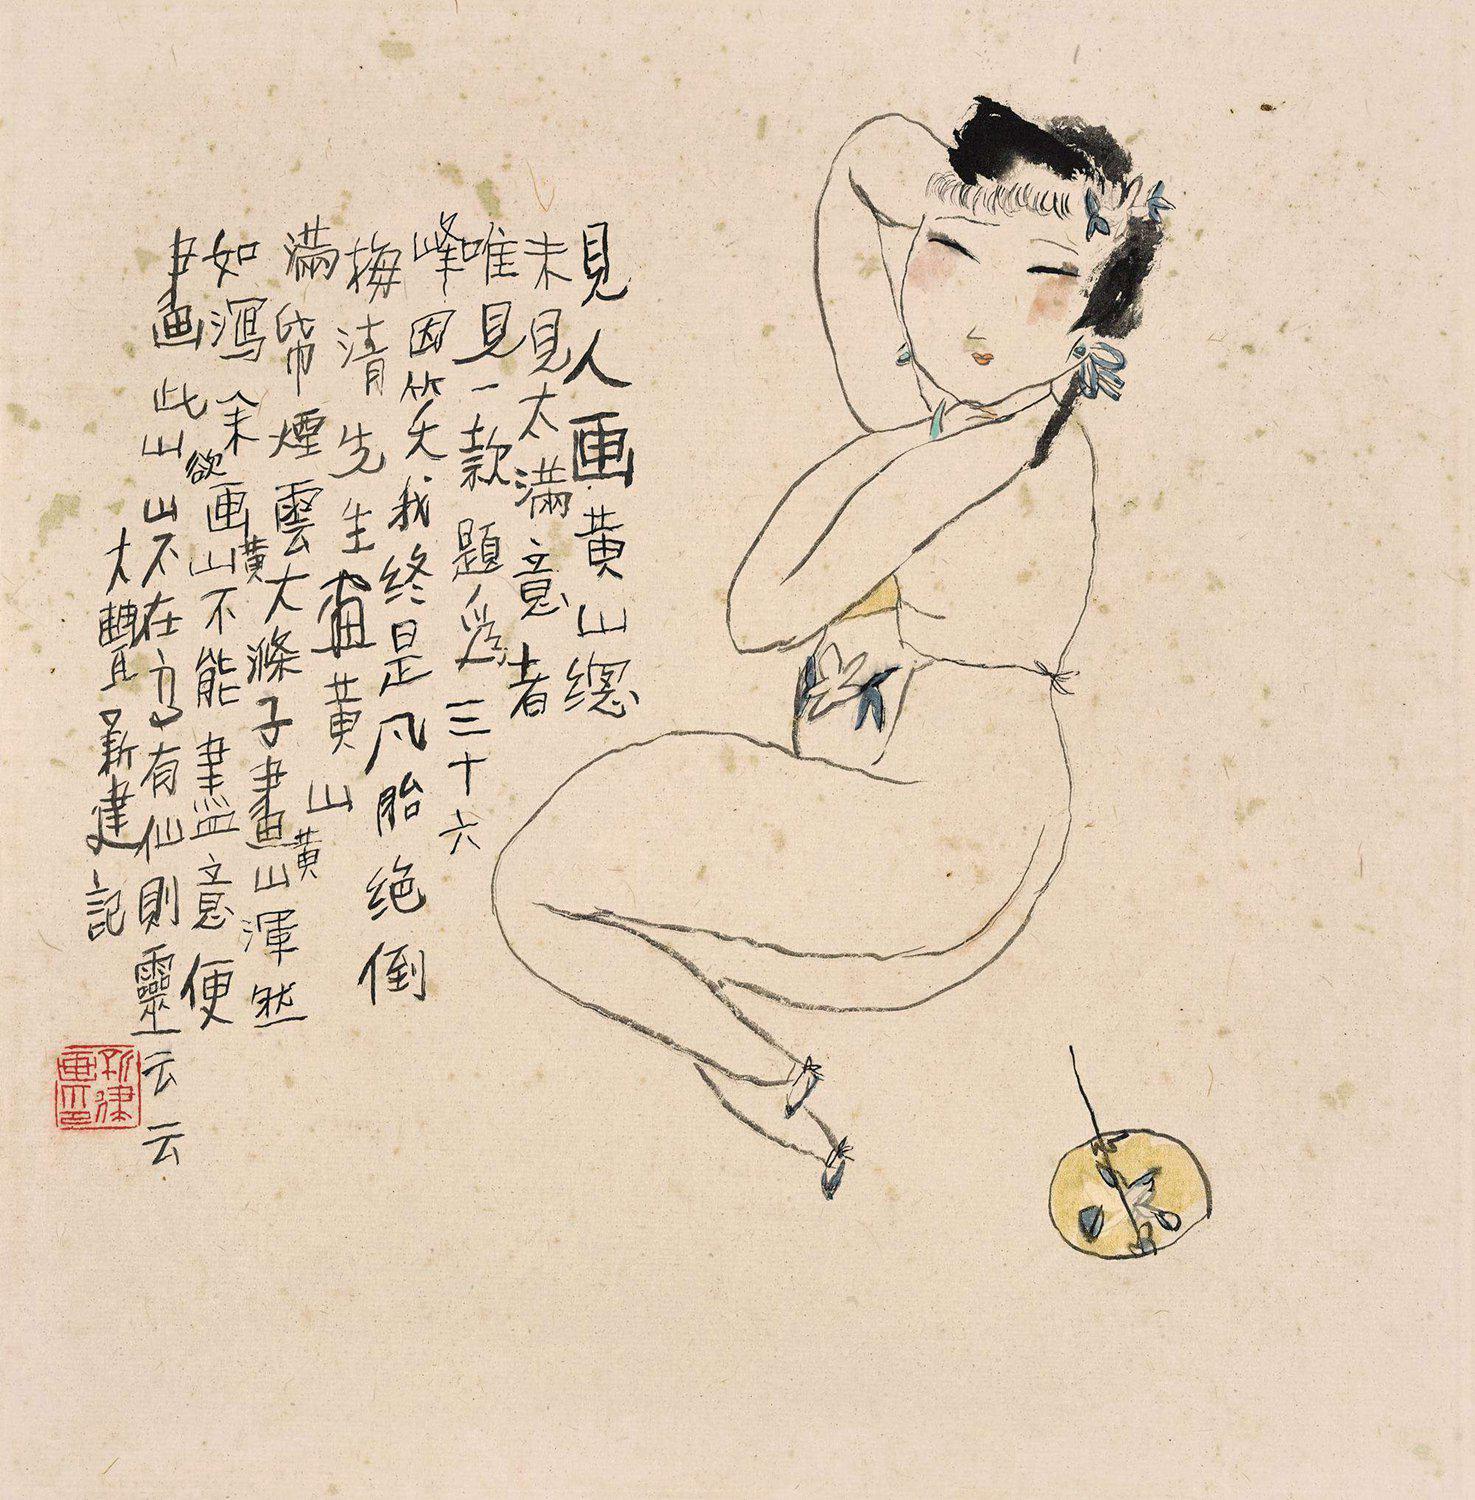 見人画黄山總
未見太滿意者
唯見一款題為三十六
峰因笑我終是凡胎绝倒
梅清先生畫黄山黄
滿帋煙雲大滌子畫山渾然
如瀉余欲画黄山不能盡意便
畫此山山不在高有仙則靈云云
大豐新建記
新建畫印